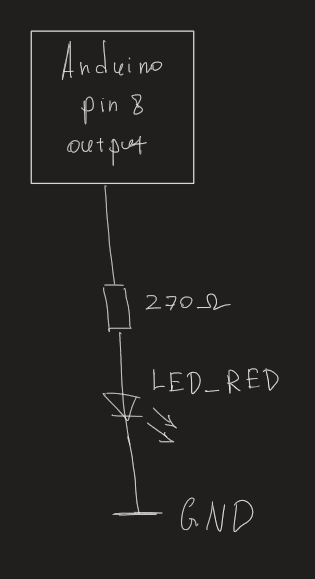 Arduino
pin 8
output
270Ω
LED_RED
GND